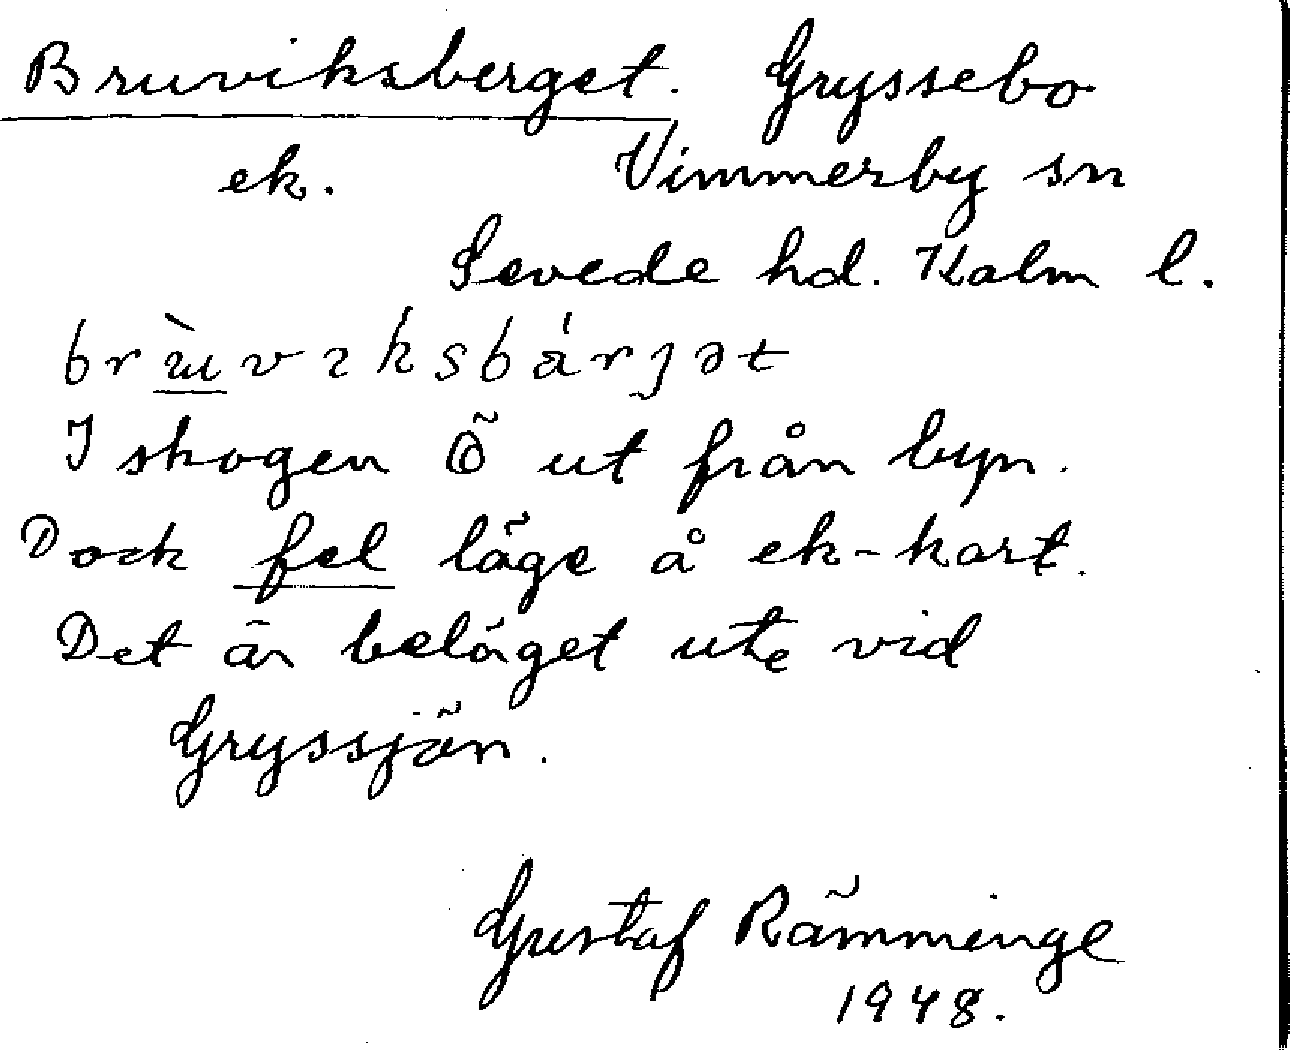 Bruviksberget. Gryssebo
ek. Vimmerby sn
Sevede hd. Kalm l.
brɯ̀vɪksbárȷət
I skogen Ö ut från byn.
Dock fel läge å ek-kart.
Det är beläget ute vid
Gryssjön.
Gustaf Rämminge
1948.